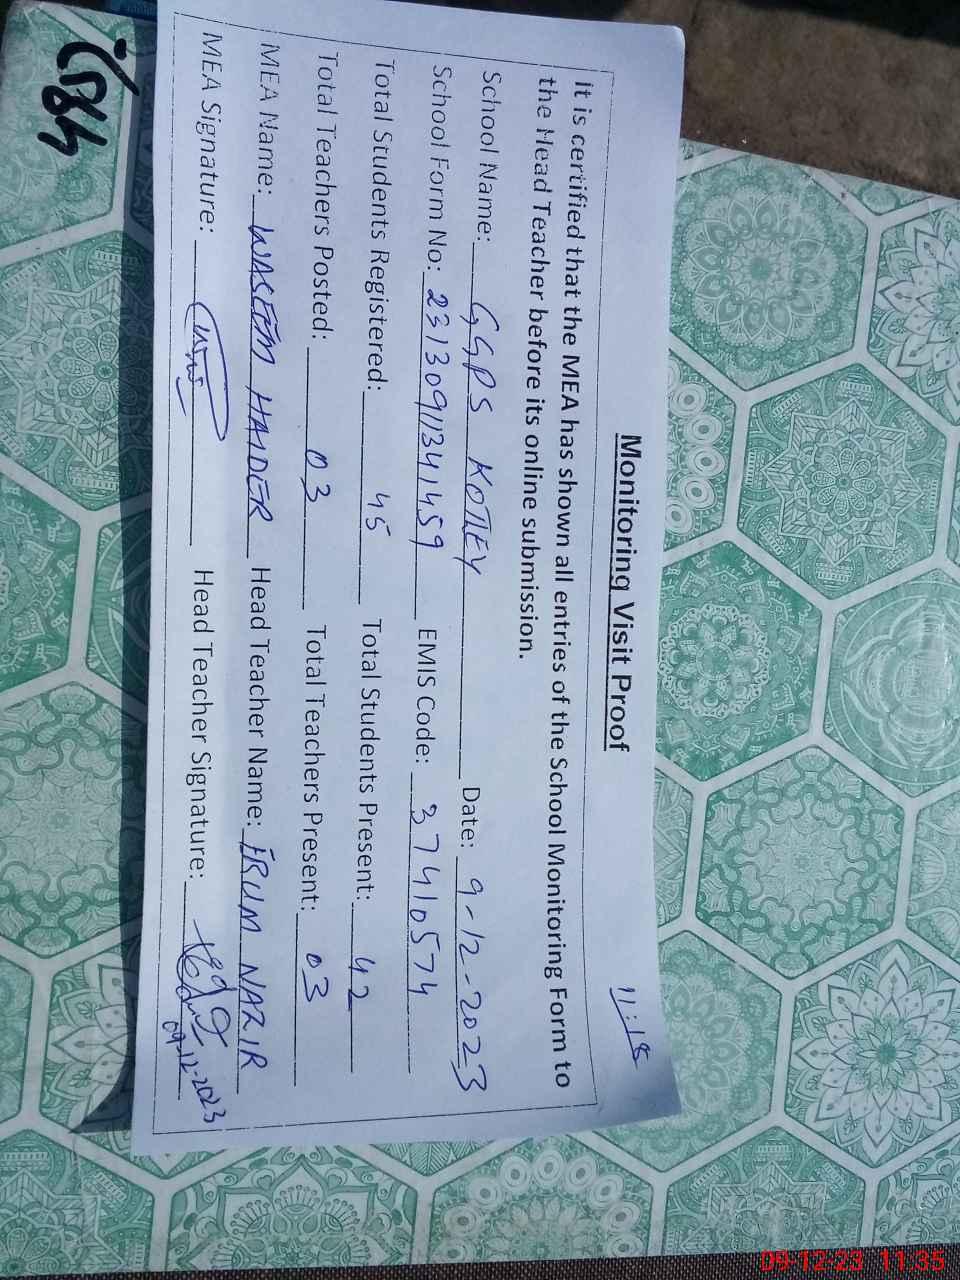 11:18
Monitoring Visit Proof
It is certified that the MEA has shown all entries of the School Monitoring Form to
the Head Teacher before its online submission.
School Name: GGPS KOTLEY Date: 9-12-2023
School Form No: 23130911341459 EMIS Code: 37410574
Total Students Registered: 45 Total Students Present: 42
Total Teachers Posted: 03 Total Teachers Present: 03
MEA Name: WASEEM HAIDER Head Teacher Name: IRUM NAZIR
MEA Signature: Head Teacher Signature:
09-12-2023
09-12-23 11:35